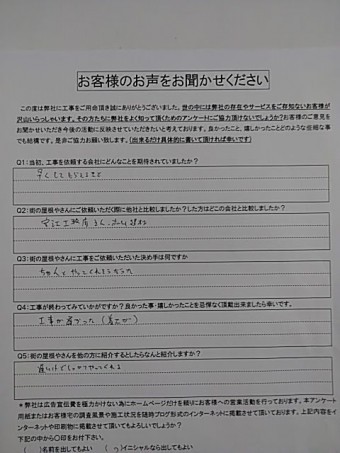 お客様のお声をお聞かせください
この度は弊社に工事をご用命頂き誠にありがとうございました。世の中には弊社の存在やサービスをご存知ないお客様が
沢山いらっしゃいます。その方たちに弊社をよく知って頂くためのアンケートにご協力頂けないでしょうか?お客様のご意見を
お聞かせいただき今後の活動に反映させていただきたいと考えております。良かったこと、嬉しかったことどのような些細な事
でも結構です。是非ご協力お願い致します。(出来るだけ具体的に書いて頂ければ幸いです)
Q1:当初、工事を依頼する会社にどんなことを期待されていましたか?
早くしてもらえること
Q2:街の屋根やさんにご依頼いただく際に他社と比較しましたか?した方はどこの会社と比較しましたか?
Q3:街の屋根やさんに工事をご依頼いただいた決め手は何ですか
ちゃんとやってくれそうだった
Q4:工事が終わってみていかがですか?良かった事・嬉しかったことを忌憚なく頂戴出来ましたら幸いです。
工事が
Q5:街の屋根やさんを他の方に紹介するとしたらなんと紹介しますか?
*弊社は広告宣伝費を極力かけない為にホームページだけを頼りにお客様への営業活動を行っております。本アンケート
用紙またはお客様宅の調査風景や施工状況を随時ブログ形式のインターネットに掲載させて頂いております。上記内容をイ
ンターネットや印刷物に掲載させて頂いてもよろしいでしょうか?
下記の中から〇印をお付下さい。
( )名前を出してもよい ( )イニシャルなら出してもよい